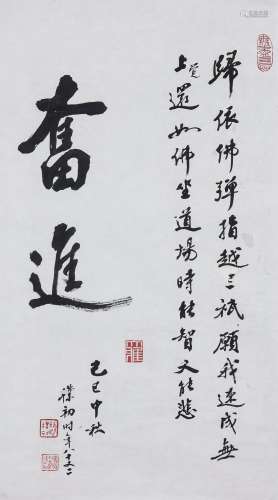 歸依佛彈指越三祇願我速成無
上覺還如佛坐道場時能智又能悲
奮進
己巳中秋
樸初时年八十又二